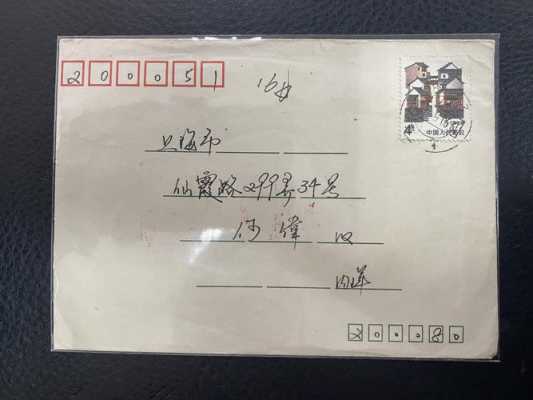 200051
上海市
仙霞路299弄34号
何偉
内详
200080
中国人民邮政